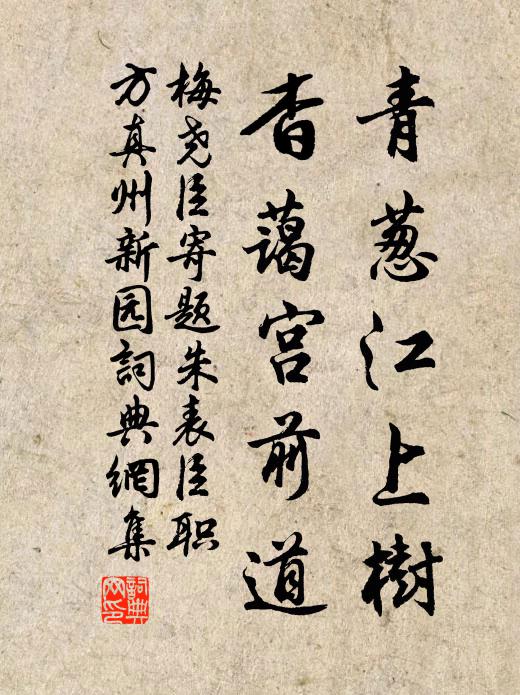 青葱江上樹
杳藹宫前道
梅尧臣寄题朱表臣职
方真州新园詞典網集
詞典网印